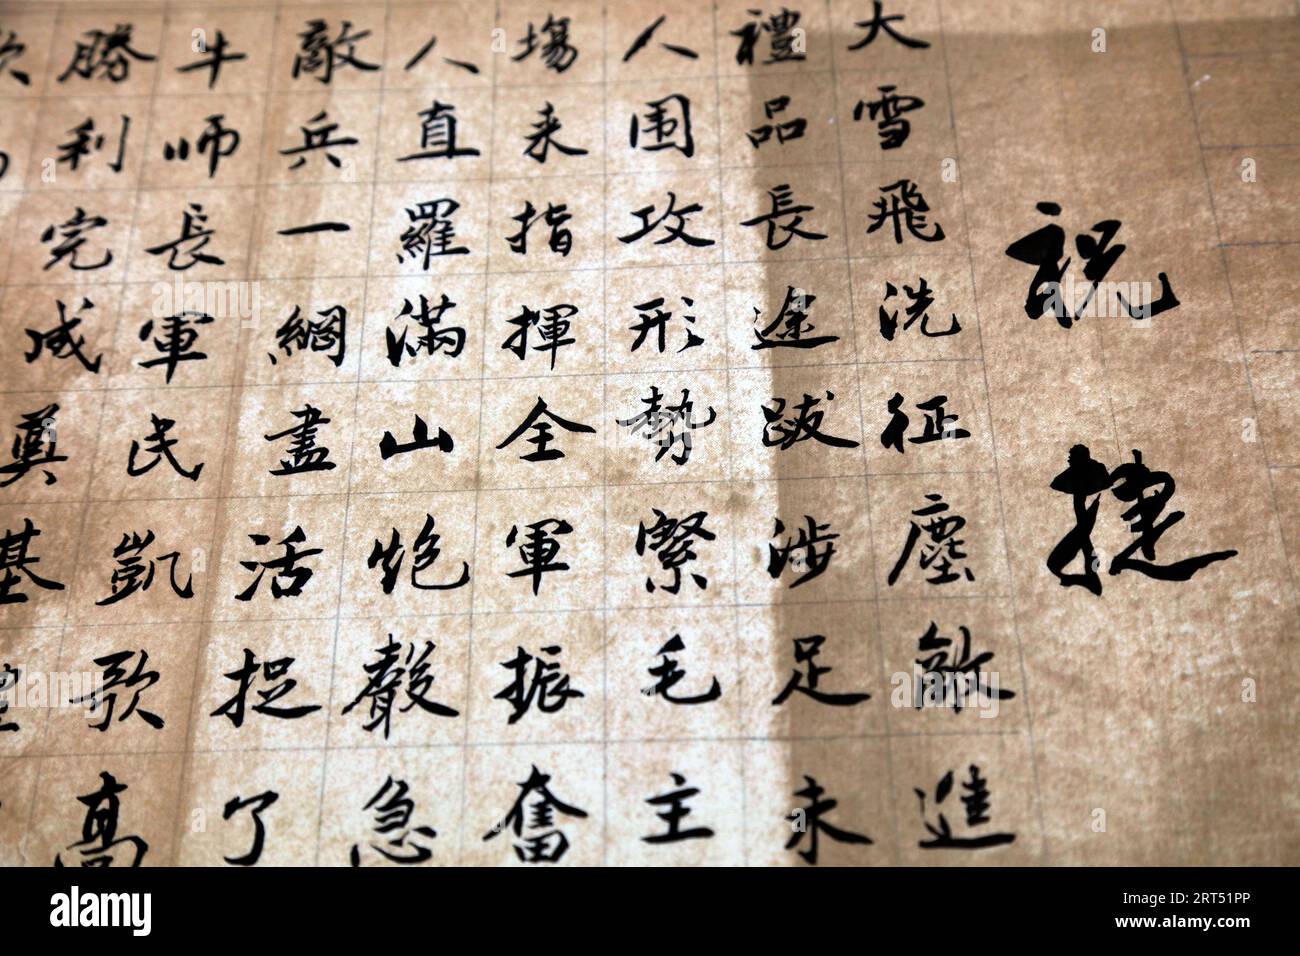 祝捷
大雪飛洗征塵敵進
禮品長途跋涉足未
人围攻形勢緊毛主
場来指揮全軍振奮
人直羅滿山炮聲急
敵兵一網盡活捉了
牛师長軍民凱歌高
勝利完成奠基
alamy
Image ID: 2RT51PP
www.alamy.com